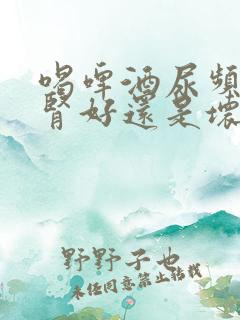 喝啤酒尿頻
腎好還是壞
野野子也
未经同意禁止转载